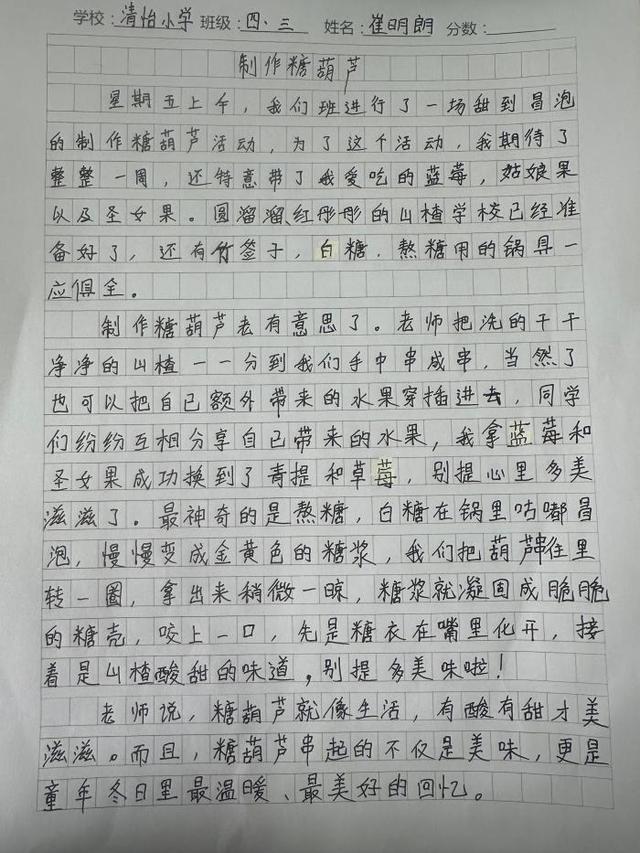 学校：清怡小学 班级：四、三 姓名：崔明朗 分数：
制作糖葫芦
星期五上午，我们班进行了一场甜到冒泡
的制作糖葫芦活动，为了这个活动，我期待了
整整一周，还特意带了我爱吃的蓝莓，姑娘果
以及圣女果。圆溜溜、红彤彤的山楂学校已经准
备好了，还有竹签子，白糖，熬糖用的锅具一
应俱全。
制作糖葫芦老有意思了。老师把洗的干干
净净的山楂一一分到我们手中串成串，当然了
也可以把自己额外带来的水果穿插进去，同学
们纷纷互相分享自己带来的水果，我拿蓝莓和
圣女果成功换到了青提和草莓，别提心里多美
滋滋了。最神奇的是熬糖，白糖在锅里咕嘟冒
泡，慢慢变成金黄色的糖浆，我们把葫芦串往里
转一圈，拿出来稍微一晾，糖浆就凝固成脆脆
的糖壳，咬上一口，先是糖衣在嘴里化开，接
着是山楂酸甜的味道，别提多美味啦！
老师说，糖葫芦就像生活，有酸有甜才美
滋滋。而且，糖葫芦串起的不仅是美味，更是
童年冬日里最温暖、最美好的回忆。